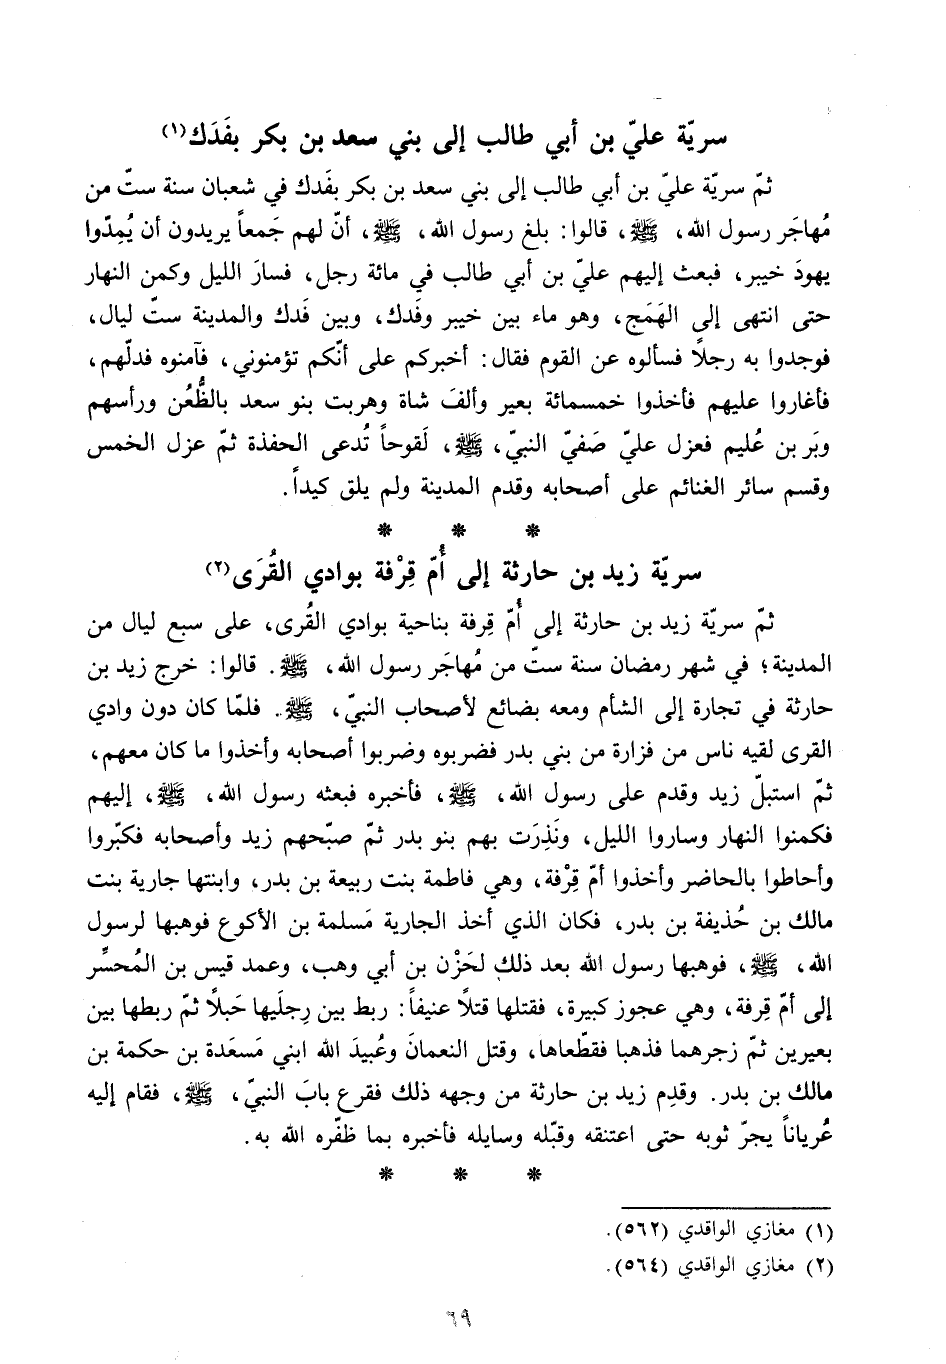 سريّة عليّ بن أبي طالب إلى بني سعد بن بكر بفَدَك(١)
ثمّ سريّة عليّ بن أبي طالب إلى بني سعد بن بكر بفَدك في شعبان سنة ستّ من
مُهاجَر رسول الله، ﷺ، قالوا: بلغ رسول الله، ﷺ، أنّ لهم جَمعاً يريدون أن يُمِدّوا
يهودَ خيبر، فبعث إليهم عليّ بن أبي طالب في مائة رجل، فسارَ الليل وكمن النهار
حتى انتهى إلى الهَمَج، وهو ماء بين خيبر وفَدك، وبين فَدك والمدينة ستّ ليال،
فوجدوا به رجلاً فسألوه عن القوم فقال: أخبركم على أنّكم تؤمنوني، فآمنوه فدلّهم،
فأغاروا عليهم فأخذوا خمسمائة بعير وألفَ شاة وهربت بنو سعد بالظُّعُن ورأسهم
وبَر بن عُليم فعزل عليّ صَفيّ النبيّ، ﷺ، لَقوحاً تُدعى الحفذة ثمّ عزل الخمس
وقسم سائر الغنائم على أصحابه وقدم المدينة ولم يلق كيداً.
* * *
سريّة زيد بن حارثة إلى أُمّ قِرْفة بوادي القُرَى(٢)
ثمّ سريّة زيد بن حارثة إلى أُمّ قِرفة بناحية بوادي القُرى، على سبع ليال من
المدينة؛ في شهر رمضان سنة ستّ من مُهاجَر رسول الله، ﷺ. قالوا: خرج زيد بن
حارثة في تجارة إلى الشأم ومعه بضائع لأصحاب النبيّ، ﷺ. فلمّا كان دون وادي
القرى لقيه ناس من فزارة من بني بدر فضربوه وضربوا أصحابه وأخذوا ما كان معهم،
ثمّ استبلّ زيد وقدم على رسول الله، ﷺ، فأخبره فبعثه رسول الله، ﷺ، إليهم
فكمنوا النهار وساروا الليل، ونَذِرَت بهم بنو بدر ثمّ صبّحهم زيد وأصحابه فكبّروا
وأحاطوا بالحاضر وأخذوا أمّ قِرْفة، وهي فاطمة بنت ربيعة بن بدر، وابنتها جارية بنت
مالك بن حُذيفة بن بدر، فكان الذي أخذ الجارية مَسلمة بن الأكوع فوهبها لرسول
الله، ﷺ، فوهبها رسول الله بعد ذلك لحَزْن بن أبي وهب، وعمد قيس بن المُحسِّر
إلى أمّ قِرفة، وهي عجوز كبيرة، فقتلها قتلاً عنيفاً: ربط بين رِجلَيها حَبلاً ثمّ ربطها بين
بعيرين ثمّ زجرهما فذهبا فقطّعاها، وقتل النعمانَ وعُبيدَ الله ابني مَسعَدة بن حكمة بن
مالك بن بدر. وقدِم زيد بن حارثة من وجهه ذلك فقرع بابَ النبيّ، ﷺ، فقام إليه
عُرياناً يجرّ ثوبه حتى اعتنقه وقبّله وسايله فأخبره بما ظفّره الله به.
* * *
(١) مغازي الواقدي (٥٦٢).
(٢) مغازي الواقدي (٥٦٤).
٦٩